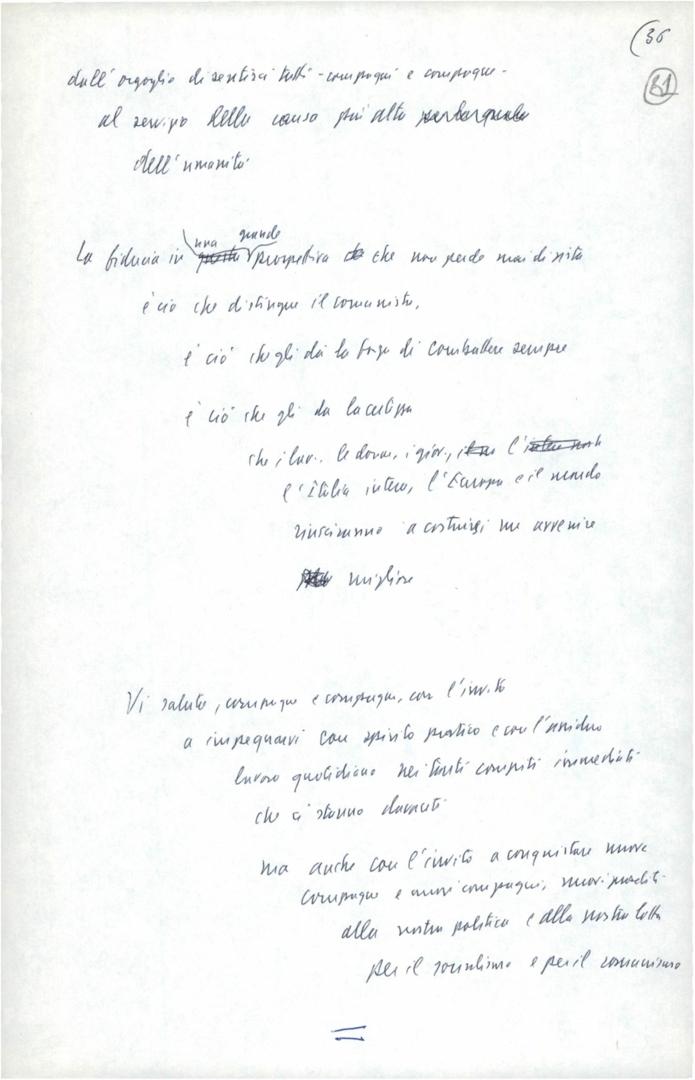 (36
31
dall'orgoglio di sentirci tutti - compagni e compagne -
al servizio della causa più alta
dell'umanità
una grande
La fiducia in questa prospettiva che non perde mai di vista
è ciò che distingue il comunista,
è ciò che gli dà la forza di combattere sempre
è ciò che gli da la certezza
che i lav., le donne, i giov., l'
l'Italia intera, l'Europa e il mondo
riusciranno a costruirsi un avvenire
migliore
Vi saluto, compagne e compagni, con l'invito
a impegnarvi con spirito pratico e con l'assiduo
lavoro quotidiano nei tanti compiti immediati
che ci stanno davanti
ma anche con l'invito a conquistare nuove
compagne e nuovi compagni, nuovi
alla nostra politica e alla nostra lotta
per il socialismo e per il comunismo